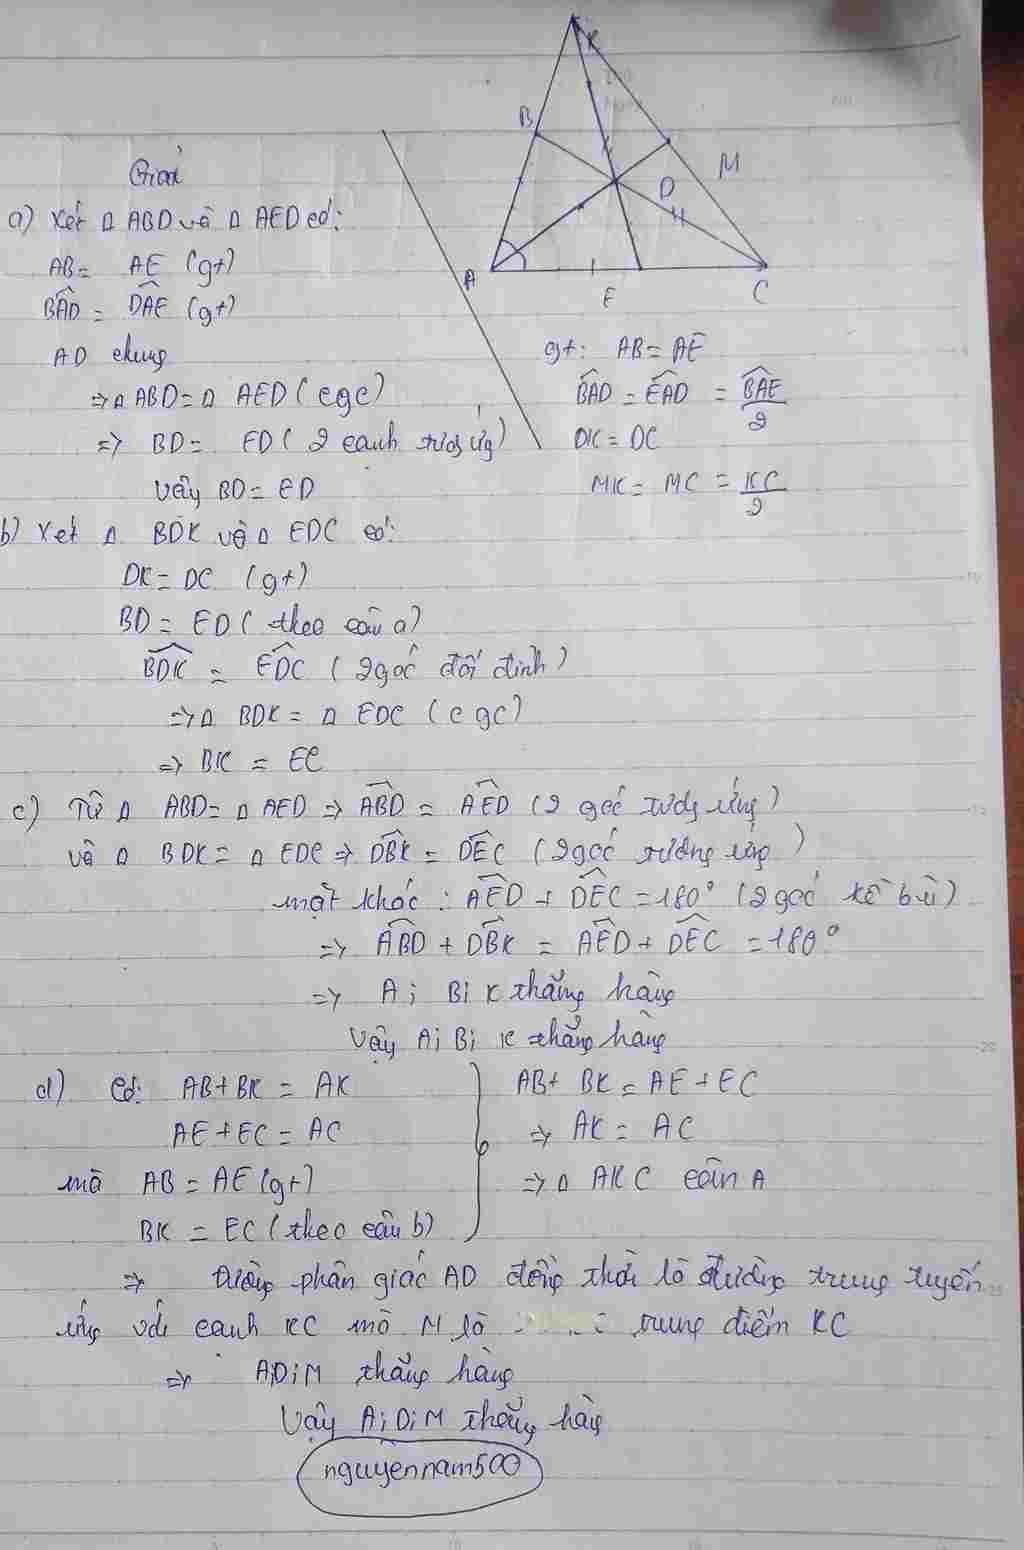 K
B
M
D
A
E
C
Giải
a) Xét Δ ABD và Δ AED có:
AB = AE (gt)
BAD = DAE (gt)
AD chung
=> Δ ABD = Δ AED (cgc)
=> BD = ED (2 cạnh tương ứng)
Vậy BD = ED
gt: AB = AE
BAD = EAD = BAE/2
DK = DC
MK = MC = KC/2
b) Xét Δ BDK và Δ EDC có:
DK = DC (gt)
BD = ED (theo câu a)
BDK = EDC (2 góc đối đỉnh)
=> Δ BDK = Δ EDC (cgc)
=> BK = EC
c) Từ Δ ABD = Δ AED => ABD = AED (2 góc tương ứng)
và Δ BDK = Δ EDC => DBK = DEC (2 góc tương ứng)
mặt khác: AED + DEC = 180° (2 góc kề bù)
=> ABD + DBK = AED + DEC = 180°
=> A; B; K thẳng hàng
Vậy A; B; K thẳng hàng
d) Có: AB + BK = AK
AE + EC = AC
mà AB = AE (gt)
BK = EC (theo câu b)
AB + BK = AE + EC
=> AK = AC
=> Δ AKC cân A
=> Đường phân giác AD đồng thời là đường trung tuyến
ứng với cạnh KC mà M là trung điểm KC
=> A;D;M thẳng hàng
Vậy A;D;M thẳng hàng
nguyennam500